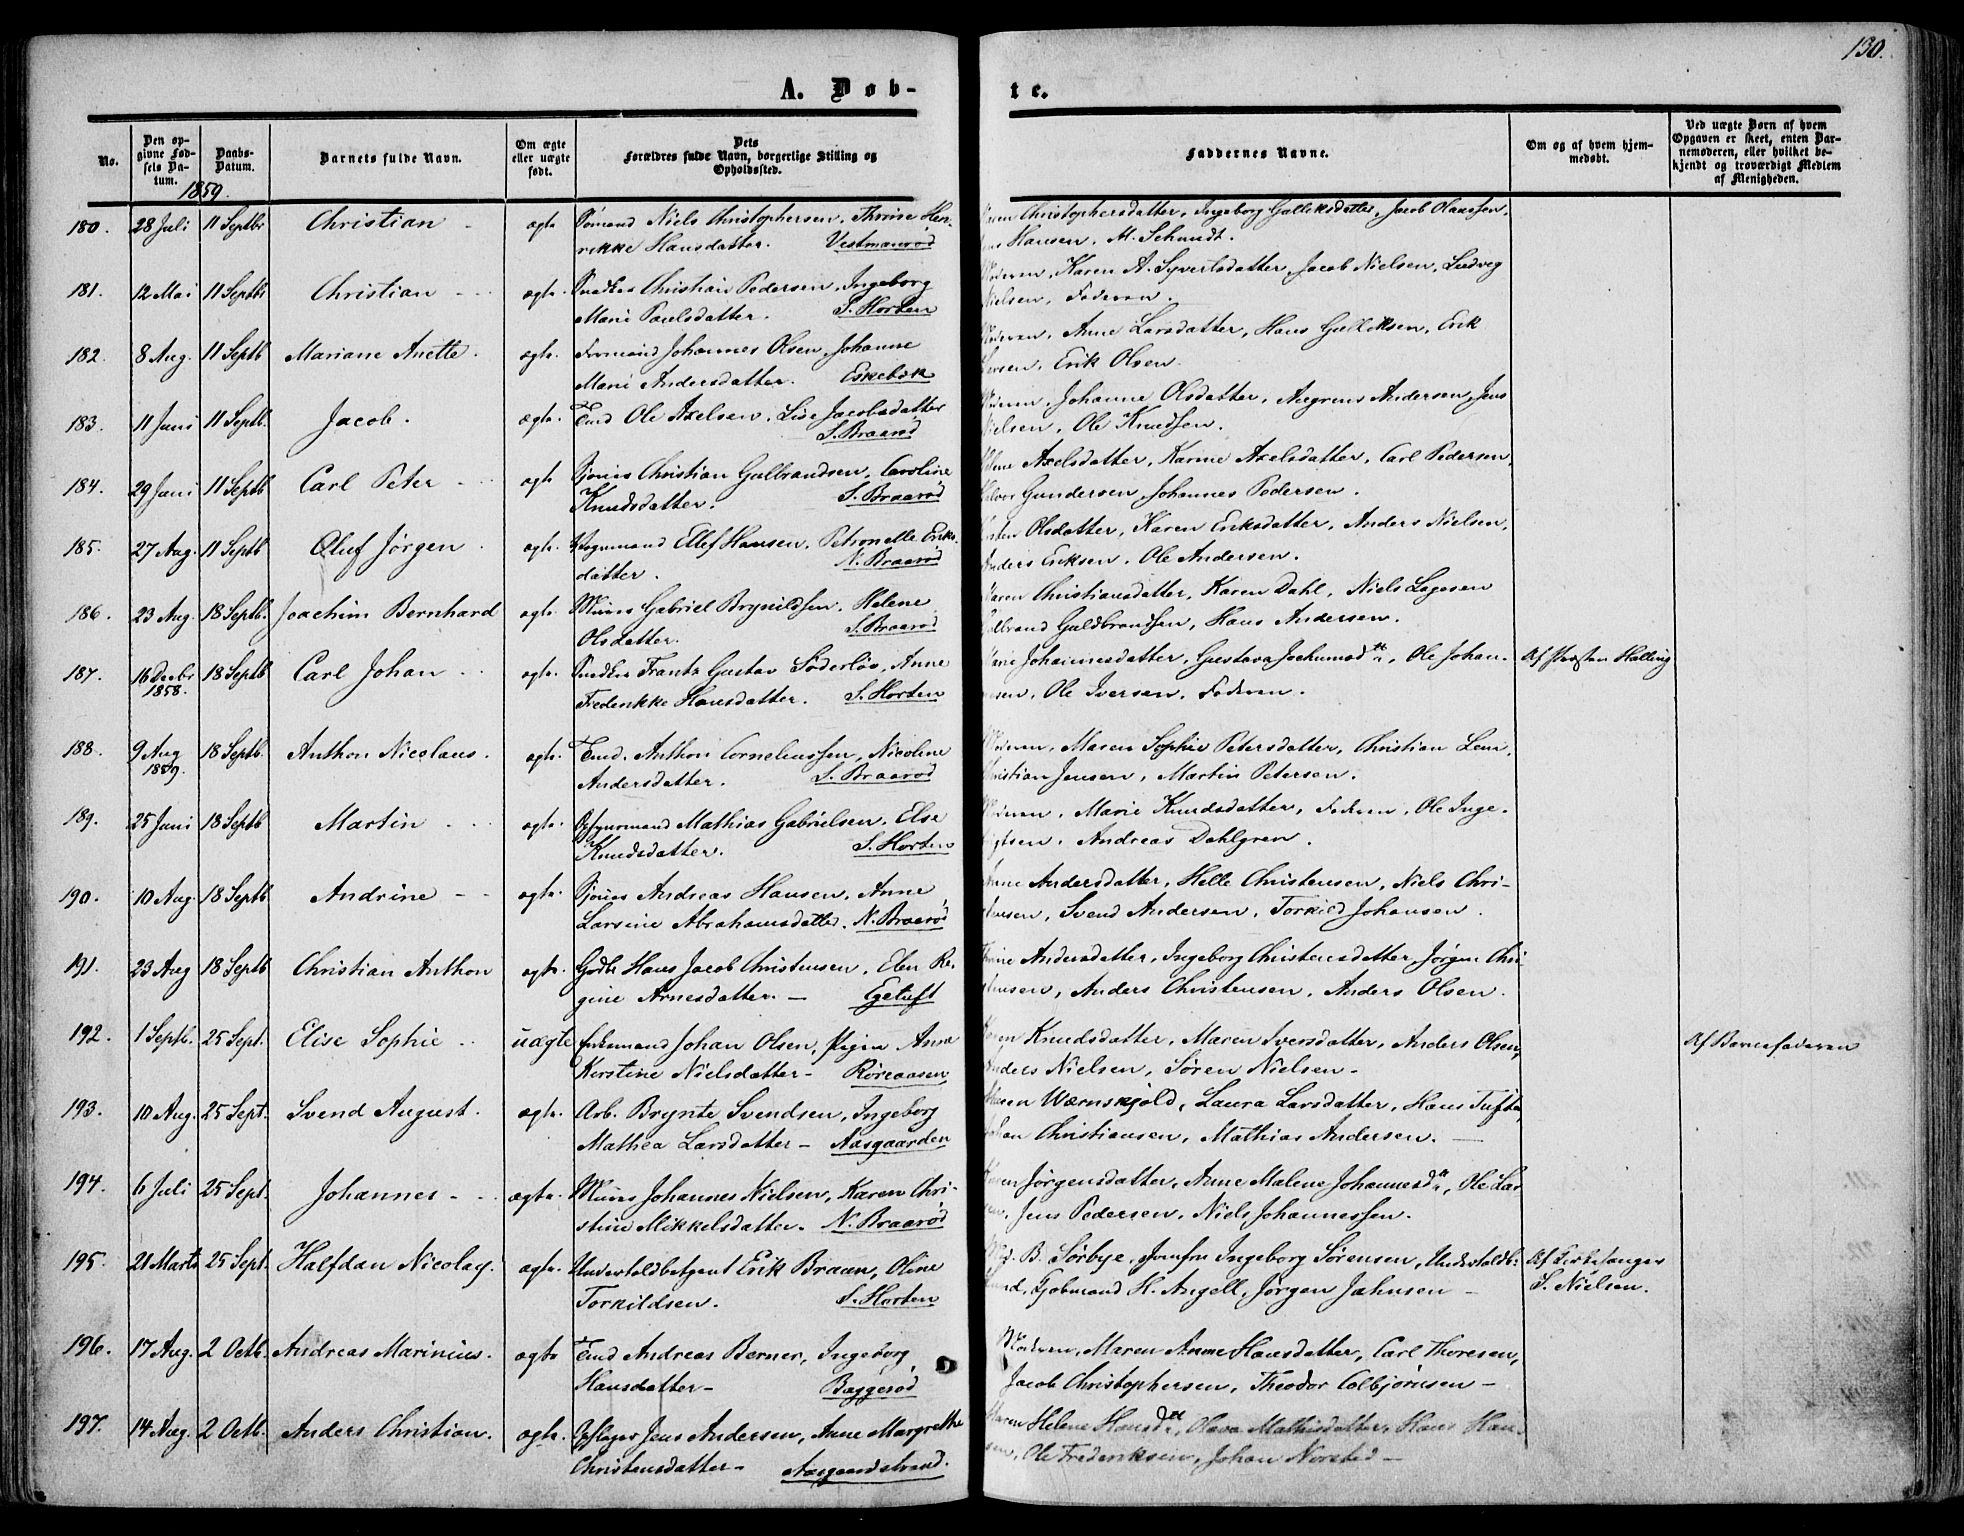 130.
A. Døb-
te.
No.
Den op-
givne Fød-
sels Da-
tum.
Daabs-
Datum.
Barnets fulde Navn.
Om ægte
eller uægte
født.
Dets
Forældres fulde Navn, borgerlige Stilling og
Opholdssted.
Faddernes Navne.
Om og af hvem hjem-
medøbt.
Ved uægte Børn af hvem
Opgaven er skeet, enten Bar-
nemoderen, eller hvilket be-
kjendt og troværdigt Medlem
af Menigheden.
1859.
180. 28 Juli 11 Septbr Christian - ægte Sømand Niels Christophersen, Thrine Hen-
rikke Hansdatter. Vestmanrød
Christophersdatter, Ingeborg Gulliksdatter, Jacob Olaussen,
Hansen, M. Schmidt.
181. 12 Mai 11 Septbr Christian - - ægte. Snedker Christian Pedersen, Ingeborg
Marie Paulsdatter. S. Horten
Moderen, Karen A. Syvertsdatter, Jacob Nielsen, Ludvig
Nielsen, Faderen.
182. 8 Aug. 11 Septb Mariane Anette. ægte. Formand Johannes Olsen, Johanne
Marie Andersdatter. Eskebæk
Moderen, Anne Larsdatter, Hans Gulliksen, Erik
Iversen, Erik Olsen.
183. 11 Juni 11 Septb. Jacob. ægte. Tmd Ole Axelsen, Lise Jacobsdatter
S. Braarød
Moderen, Johanne Olsdatter, Andersen, Jens
Nielsen, Ole Knudsen.
184. 29 Juni 11 Septb Carl Peter - - ægte Christian Gulbrandsen, Caroline
Knudsdatter. S. Braarød
Helene Axelsdatter, Karine Axelsdatter, Carl Pedersen,
Halvor Gundersen, Johannes Pedersen.
185. 27 Aug. 11 Septb Oluf Jørgen. ægte. Ellef Hansen, Petronelle Eriks-
datter. N. Braarød
Olsdatter, Karen Eriksdatter, Anders Nielsen,
Anders Eriksen, Ole Andersen.
186. 23 Aug. 18 Septb. Joachim Bernhard ægte. Murer Gabriel Brynildsen, Helene
Olsdatter. S. Braarød
Karen Christiansdatter, Karen Dahl, Niels Lagesen
Gulbrand Guldbrandsen, Hans Andersen.
187. 16 Decbr
1858. 18 Septb Carl Johan - - ægte. Snedker Frantz Gustav Söderlöv, Anne
Frederikke Hansdatter. S. Horten
Marie Johannesdatter, Gustava Jochumsdtr, Ole Johan-
nesen, Ole Iversen, Faderen.
Af Presten Halling
188. 9 Aug
1859. 18 Septb. Anthon Nicolaus. ægte. Tmd. Anthon Corneliussen, Nicoline
Andersdatter. S. Braarød
Moderen, Maren Sophie Petersdatter, Christian Lem,
Christian Jensen, Martin Petersen.
189. 25 Juni 18 Septb Martin - - ægte. Opsynsmand Mathias Gabrielsen, Else
Knudsdatter. S. Horten
Moderen, Marie Knudsdatter, Faderen, Ole Inge-
brigtsen, Andreas Dahlgren.
190. 10 Aug. 18 Septb Andrine - - ægte. Andreas Hansen, Anne
Larsine Abrahamsdatter. N. Braarød
Anne Andersdatter, Helle Christensen, Niels Chri-
stensen, Svend Andersen, Torkild Johansen.
191. 23 Aug 18 Septb Christian Anthon ægte. Gaardbr. Hans Jacob Christensen, Elen Re-
gine Arnesdatter. - Egetuft
Andersdatter, Ingeborg Christensdatter, Jørgen Chri-
stensen, Anders Christensen, Anders Olsen.
192. 1 Septb. 25 Sept. Elise Sophie - - uægte Enkemand Johan Olsen, Pigen Anne
Kerstine Nielsdatter - Røreaasen
Karen Knudsdatter, Maren Iversdatter, Anders Olsen,
Anders Nielsen, Søren Nielsen -
Af Barnefaderen
193. 10 Aug. 25 Sept. Svend August. ægte. Arb. Brynte Svendsen, Ingeborg
Mathea Larsdatter - Aasgaarden
Maren Wærnskjold, Laura Larsdatter, Hans Tufte,
Johan Christiansen, Mathias Andersen. -
194. 6 Juli 25 Sept. Johannes - - ægte. Murer Johannes Nielsen, Karen Chri-
stine Mikkelsdatter. N. Braarød
Karen Jørgensdatter, Anne Malene Johannesdtr, Ole Lar
sen, Jens Pedersen, Niels Johannessen.
195. 21 Marts 25 Sept. Halfdan Nicolay. ægte. Undertoldbetjent Erik Braan, Oline
Torkildsen. S. Horten
Mad. B. Sørbye, Jomfru Ingeborg Sørensen, Undertoldb:
Lund, Kjøbmand H. Angell, Jørgen Jahnsen -
Af Kirkesanger
S. Nielsen.
196. 17 Aug. 2 Octb. Andreas Marinius. ægte Tmd Andreas Berner, Ingeborg
Hansdatter - Baggerød
Moderen, Maren Anne Hansdatter, Carl Thoresen,
Jacob Christophersen, Theodor Colbjørnsen -
197. 14 Aug. 2 Octb. Anders Christian. ægte. Opslager Jens Andersen, Anne Margrethe
Christensdatter - Aasgaardstrand.
Maren Helene Hansdtr, Olava Mathisdatter, Hans Han-
sen, Ole Frederiksen, Johan Norsted -